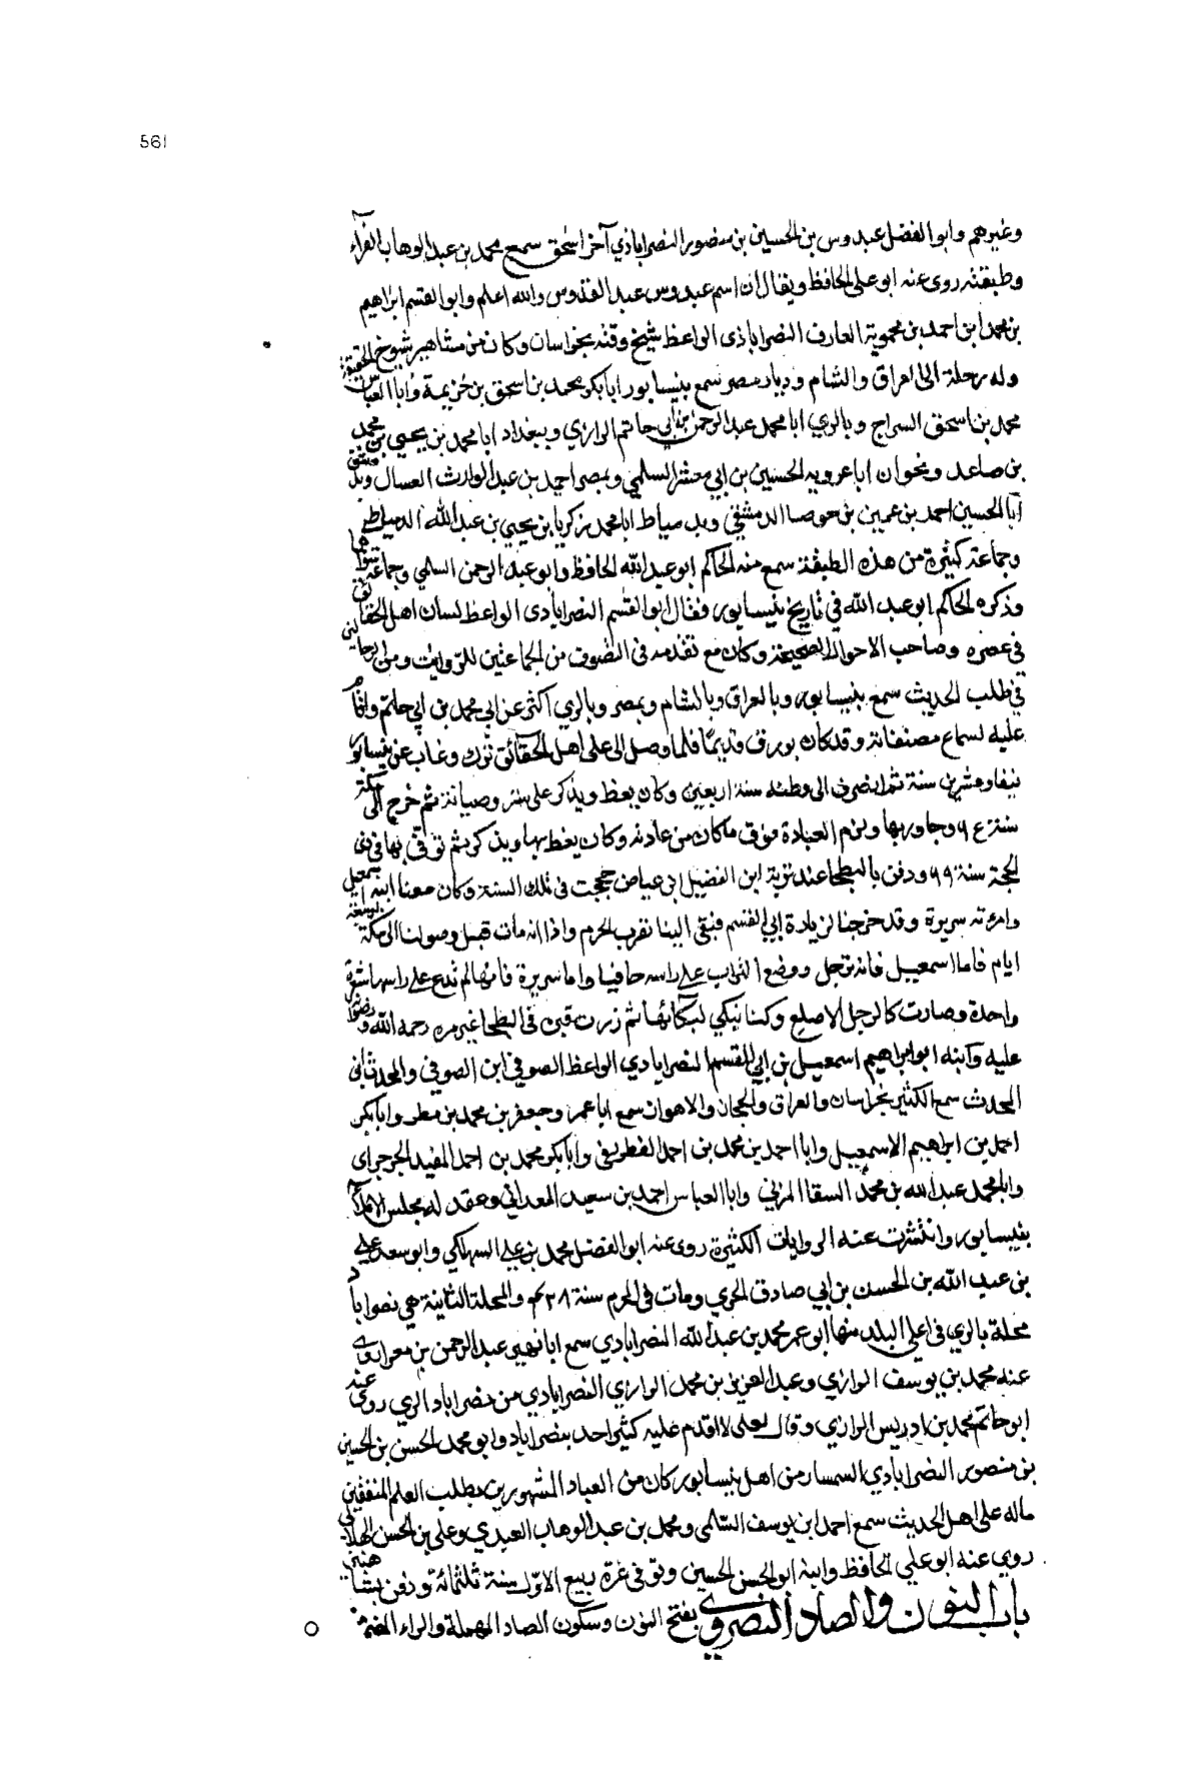 561
وغيرهم وابو الفضل عبدوس بن الحسين بن منصور النصراباذي آخر اسحق سمع محمد بن عبد الوهاب الفراء
وطبقته روى عنه ابو علي الحافظ ويقال ان اسم عبدوس عبد القدوس والله اعلم وابو القسم ابراهيم
بن محمد ابن احمد بن محموية العارف النصراباذى الواعظ شيخ وقته بخراسان وكان من مشاهير شيوخ الحقيقة
وله رحلة الى العراق والشام وديار مصر سمع بنيسابور ابابكر محمد بن اسحق بن خزيمة وابا العباس
محمد بن اسحق السراج وبالري ابا محمد عبد الرحمن بن ابي حاتم الرازي وببغداد ابا محمد بن يحيى بن محمد
بن صاعد وبحران ابا عروبه الحسين بن ابي معشر السلمي وبمصر احمد بن عبد الوارث العسال وبدمشق
ابا الحسين احمد بن عمير بن حوصا الدمشقي وبدمياط ابا محمد زكريا بن يحيى بن عبد الله الدمياطي
وجماعة كثيرة من هذه الطبقة سمع منه الحاكم ابو عبد الله الحافظ وابو عبد الرحمن السلمي وجماعة سواهما
وذكره الحاكم ابو عبد الله في تاريخ نيسابور فقال ابو القسم النصراباذى الواعظ لسان اهل الحقائق
في عصره وصاحب الاحوال الصحيحة وكان مع تقدمه فى التصوف من الجماعين للروايات ومن الرحالين
في طلب الحديث سمع بنيسابور وبالعراق وبالشام وبمصر وبالري اكثر عن ابي محمد بن ابي حاتم واقام
عليه لسماع مصنفاته وقد كان يورق قديما فلما وصل الى على اهل الحقائق ترك وغاب عن نيسابور
نيفا وعشرين سنة ثم انصرف الى وطنه سنة اربعين وكان يعظ ويذكر على ستر وصيانة ثم خرج الى مكة
سنة وجاور بها ولزم العبادة فوق ماكان من عادته وكان يعظ بها ويذكر ثم توفى بها في ذى
الحجة سنة ودفن بالبطحا عند تربة ابن الفضيل ابن عياض حججت فى تلك السنة وكان معنا ابنه اسمعيل
وامرءته سريرة وقد خرجنا لزيادة ابي القسم فبقى الينا بقرب الحرم واذا انه مات قبل وصولنا الى مكة بسبعة
ايام فاما اسمعيل فانه ترجل ووضع التراب على راسه حافيا واما سريرة فانها لم تدع على راسها شعرة
واحدة وصارت كالرجل الاصلع وكنا نبكي لبكائها ثم زرت قبره فى البطحا غير مره رحمه الله ورضوانه
عليه وابنه ابو ابراهيم اسمعيل بن ابي القسم النصراباذي الواعظ الصوفي ابن الصوفي والمحدث ابن
المحدث سمع الكثير بخراسان والعراق والحجاز والاهواز سمع ابا عمر وجعفر بن محمد بن مطر وابا بكر
احمد بن ابراهيم الاسمعيل وابا احمد بن محمد بن احمد الغطريفي وابا بكر محمد بن احمد المفيد الجرجراي
وابا محمد عبد الله بن محمد السقا المزني وابا العباس احمد بن سعيد المعداني وعقد له مجلس الاملا
بنيسابور وانتشرت عنه الروايات الكثيرة روى عنه ابو الفضل محمد بن علي السهلكي وابو سعد علي
بن عبد الله بن الحسن بن ابي صادق الحري ومات فى المحرم سنة ٤٢٨ والمحلة الثانية هي نصراباد
محلة بالري فى اعلي البلد منها ابو عمر محمد بن عبد الله النصراباذي سمع ابا زهير عبد الرحمن بن مغرا روى
عنه محمد بن يوسف الرازي وعبد العزيز بن محمد الرازي النصراباذي من نصراباد الري روى عنه
ابو حاتم محمد بن ادريس الرازي وقال لعلى لا اقدم عليه كثير احد بنصراباد وابو محمد الحسن بن الحسين
بن منصور النصراباذي السمسار من اهل نيسابور كان من العباد المشهورين بطلب العلم المنفقين
ماله على اهل الحديث سمع احمد ابن يوسف السلمى ومحمد بن عبد الوهاب العبدي وعلي بن الحسن الهلالي
روي عنه ابو علي الحافظ وابنه ابو الحسن الحسين وتوفى غرة ربيع الاول سنة ثلثمائة ودفن
باب النون والصاد النصروي بفتح النون وسكون الصاد المهملة والراء